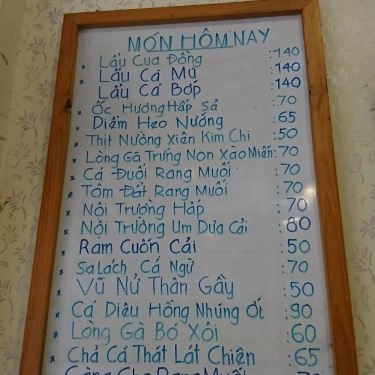 MÓN HÔM NAY
* Lẩu Cua Đồng :140
* Lẩu Cá Mú :140
* Lẩu Cá Bớp :140
* Ốc Hương Hấp Sả :70
* Diềm Heo Nướng :65
* Thịt Nướng Xiên Kim Chi :50
* Lòng Gà Trứng Non Xào Miến :70
* Cá Đuối Rang Muối :70
* Tôm Đất Rang Muối :70
* Nội Trường Hấp :70
* Nội Trường Um Dưa Cải :80
* Ram Cuốn Cải :50
* Salách Cá Ngừ :70
* Vũ Nữ Thân Gầy :50
* Cá Diêu Hồng Nhúng Ớt :90
* Lòng Gà Bó Xôi :60
* Chả Cá Thát Lát Chiên :65
Rang Muối